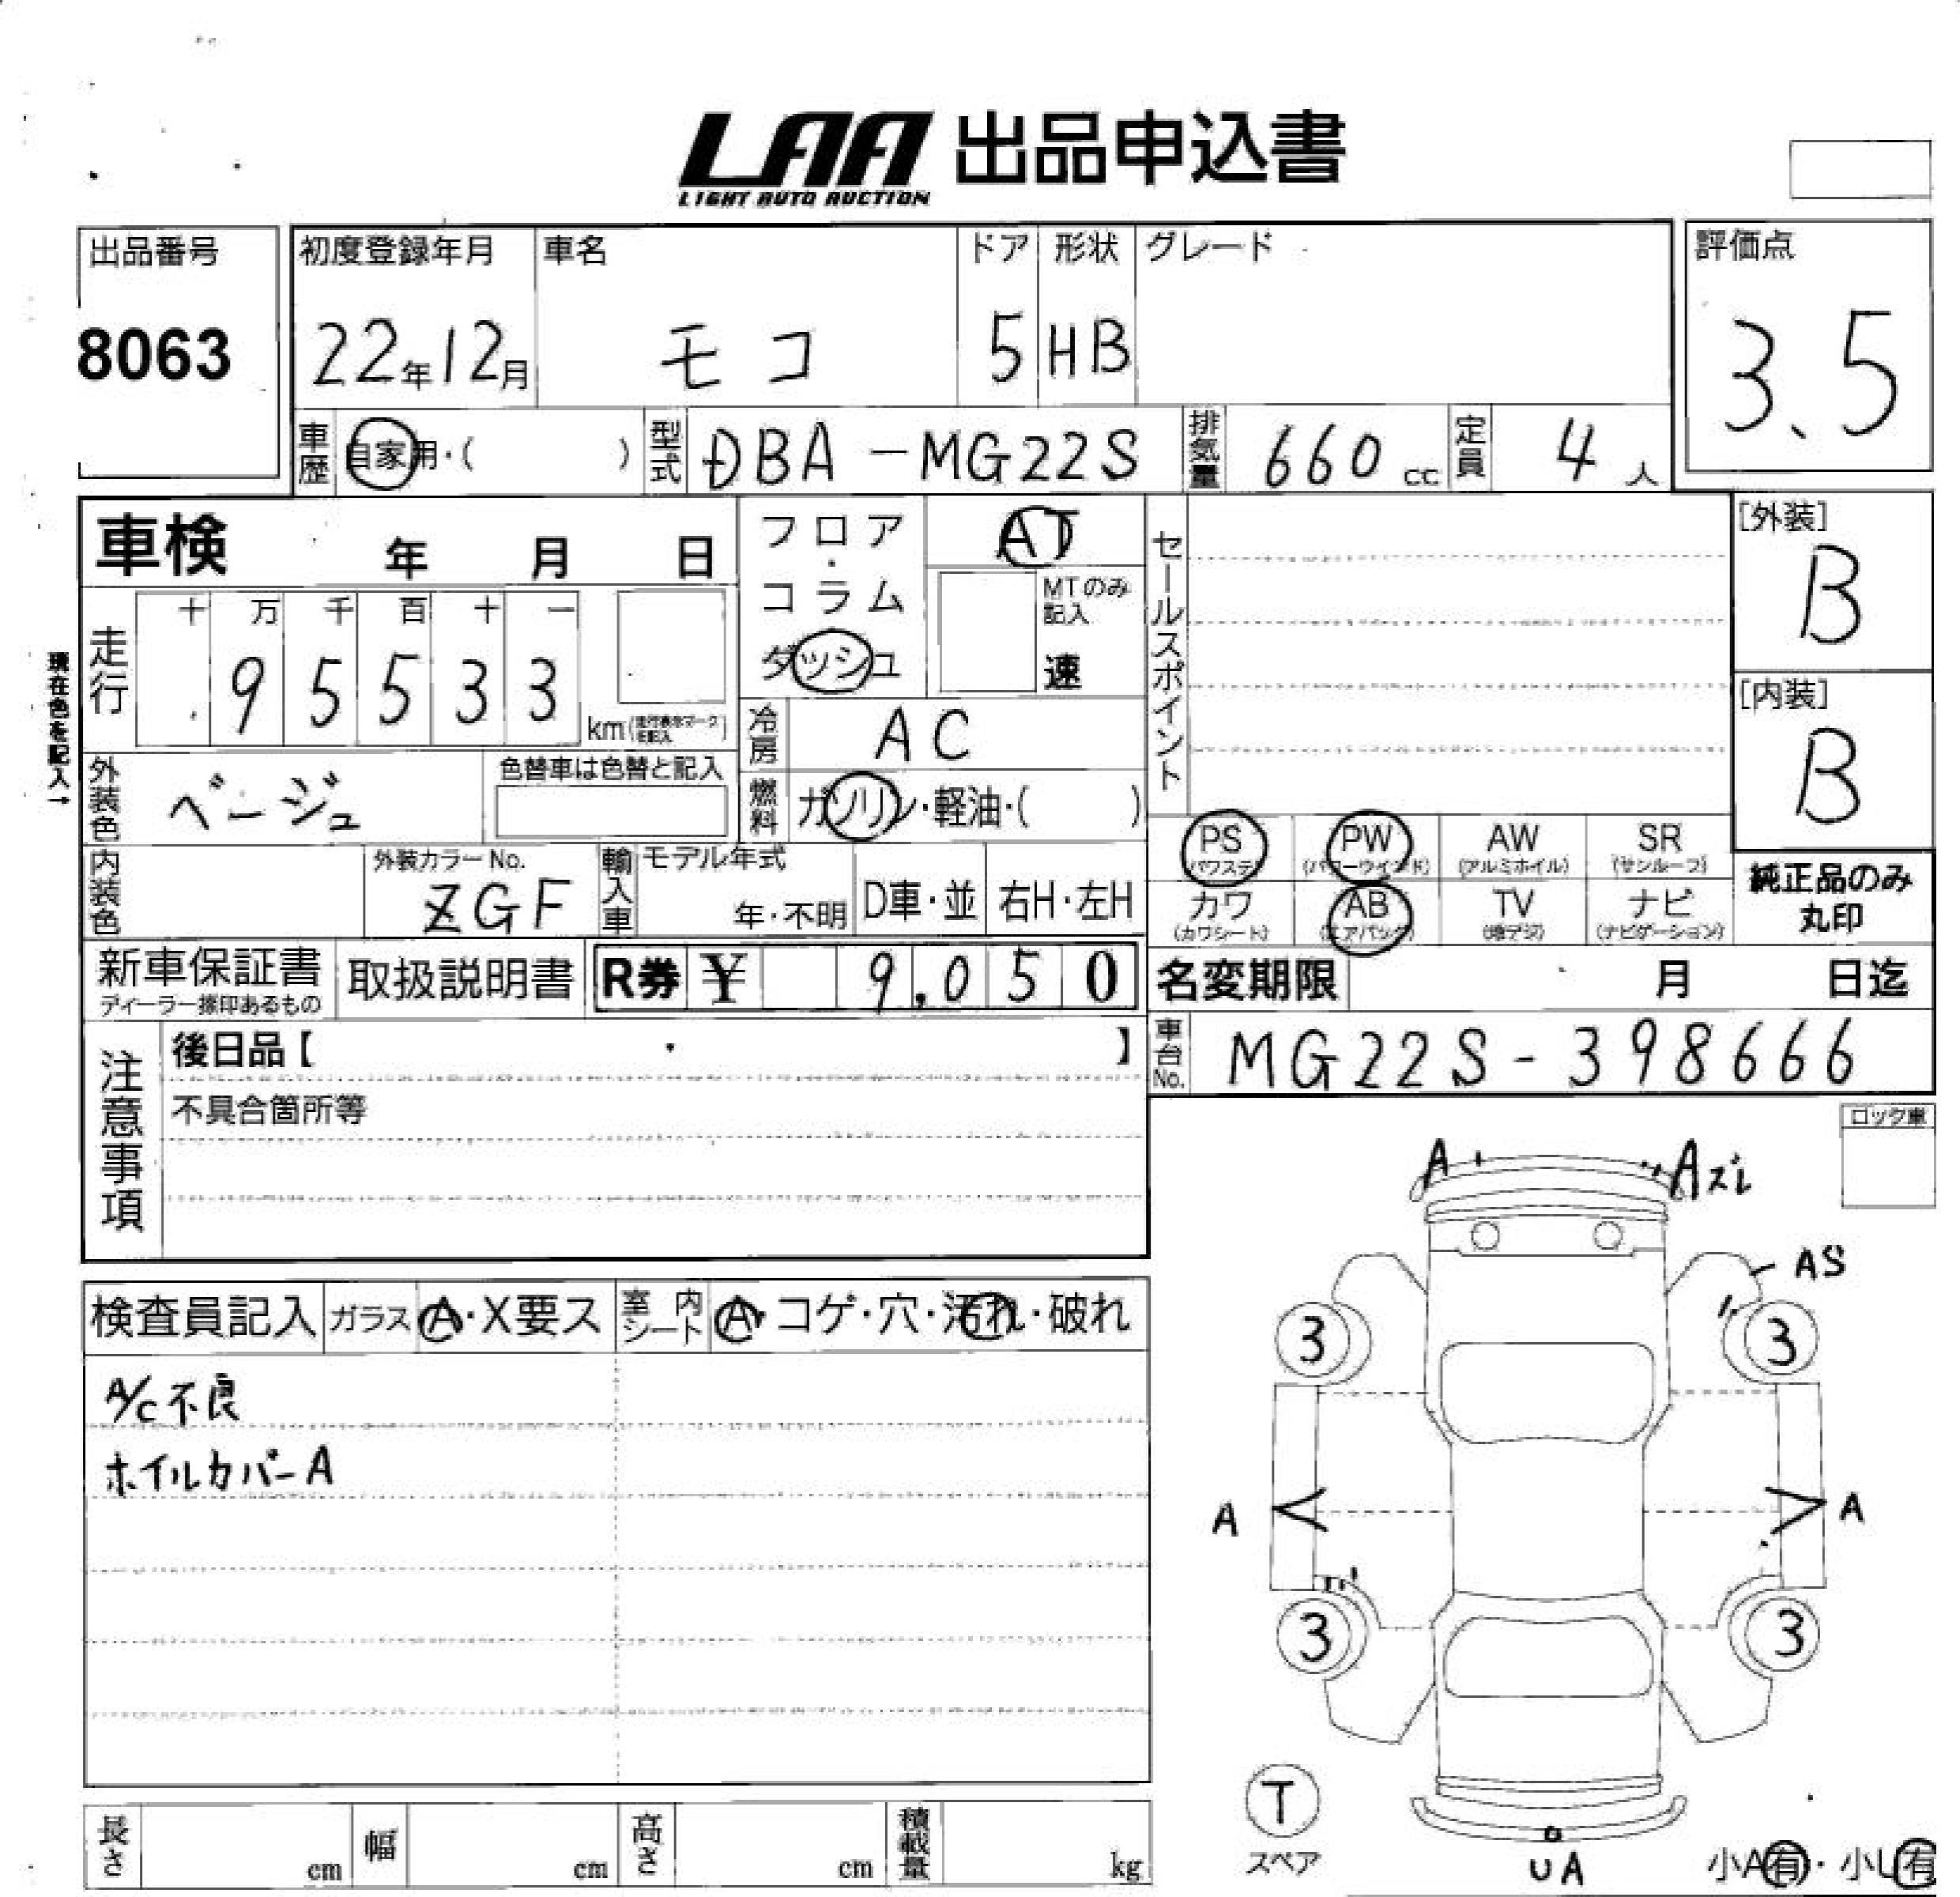 LAA 出品申込書
LIGHT AUTO AUCTION
出品番号 初度登録年月 車名 ドア 形状 グレード 評価点
8063 22年12月 モコ 5 HB 3.5
車歴 自家用・( ) 型式 DBA-MG22S 排気量 660 cc 定員 4 人
車検 年 月 日 フロア・コラム ダッシュ AT セールスポイント [外装]
B
MTのみ記入
速
十 万 千 百 十 一
走行 95533 km
[内装]
B
現在色を記入→
冷房 AC
外装色 ベージュ 色替車は色替と記入 燃料 ガソリン・軽油・( )
PS PW AW SR
(パワステ) (パワーウインド) (アルミホイル) (サンルーフ)
内装色 外装カラーNo. ZGF 輸入車 モデル年式 年・不明 D車・並 右H・左H
カワ AB TV ナビ
(カワシート) (エアバック) (地デジ) (ナビゲーション)
純正品のみ
丸印
新車保証書 取扱説明書 R券 ¥ 9,050 名変期限 月 日迄
ディーラー捺印あるもの
注意事項 後日品【 】 車台No. MG22S-398666
不具合箇所等
ロック車
A Aズレ
AS
検査員記入 ガラス A・X要ス 室内シート A・コゲ・穴・汚れ・破れ
3 3
A/C不良
ホイルカバーA
A A
3 3
T
スペア
UA
小A有・小U有
長さ cm 幅 cm 高さ cm 積載量 kg